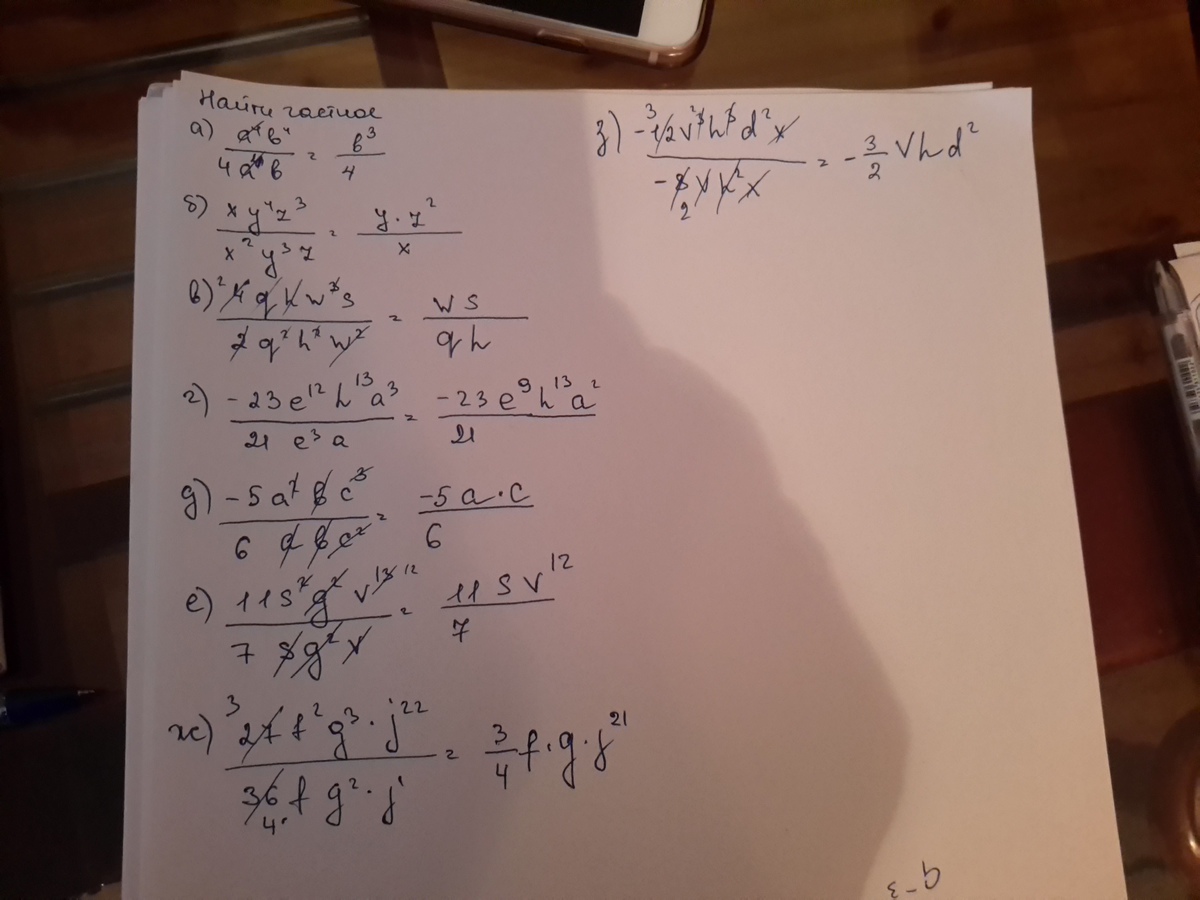 Найти частное
а) a⁴b⁴ / 4a⁴b = b³ / 4
б) xy⁴z³ / x²y³z = y·z² / x
в) ² 4qhw³s / 2q²h²w² = ws / qh
г) -23e¹²h¹³a³ / 21e³a = -23e⁹h¹³a² / 21
д) -5a²bc³ / 6abc² = -5a·c / 6
е) 11s²g²v¹³ ¹² / 7sg²v = 11sv¹² / 7
ж) ³ 27f²g³·j²² / 36fg²·j 4 = 3/4 f·g·j²¹
з) ³ -12v²h³d²x / -8vh²x 2 = -3/2 vhd²